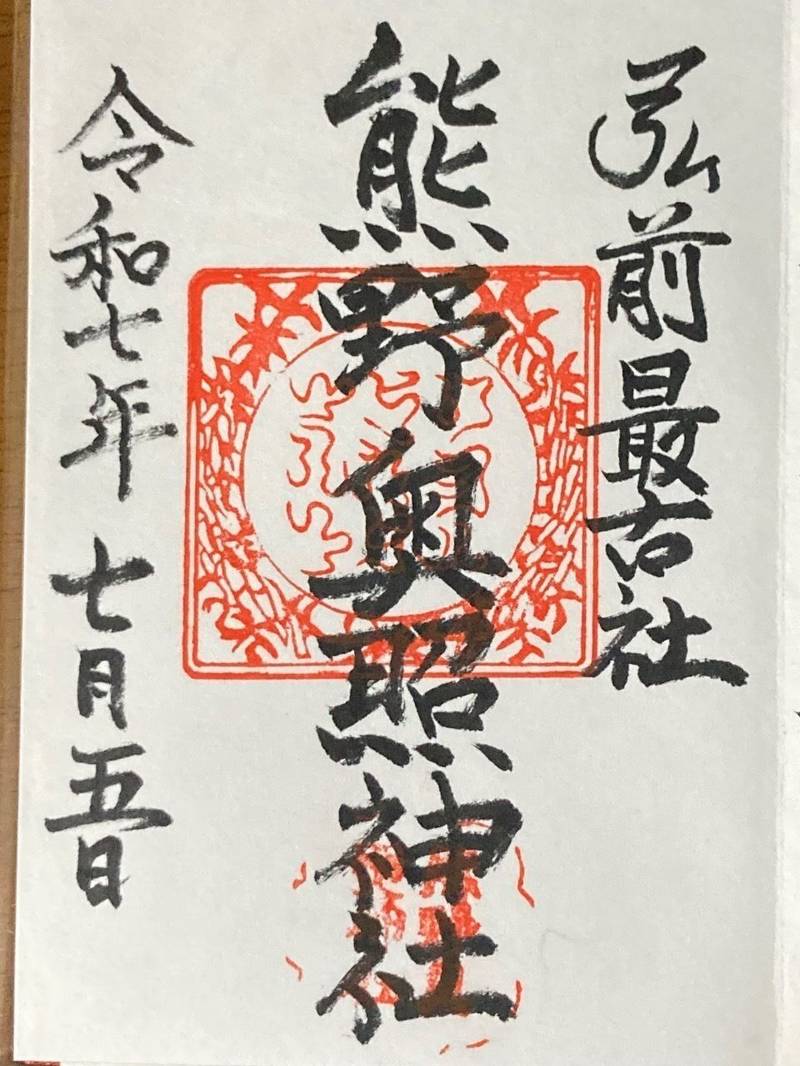 弘前最古社
熊野奥照神社
令和七年 七月五日